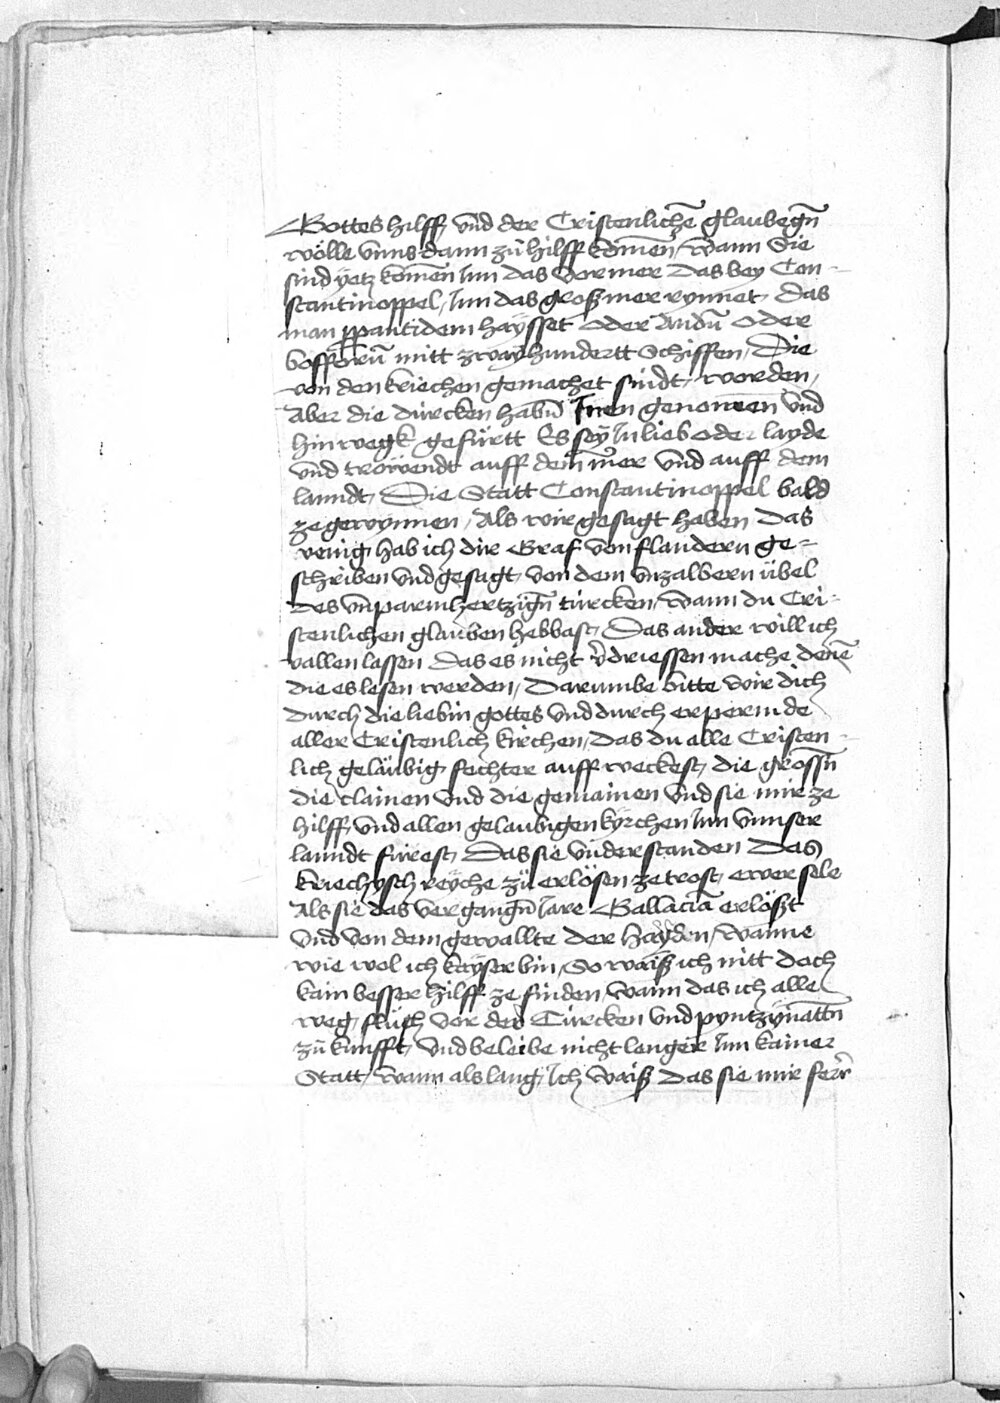 Gottes hilff vnd der Cristenlichē glaubegn̄
wölle vnns dann zu hilff komen, wann Sie
sind yetz komen Inn das vormer das bey Con-
stantinoppel, Inn das groß mer rynnet, das
man ppantidem haysset oder Andū oder
bofforū mitt zway hundertt Schiffen, Die
von den kriechen gemachet sindt worden,
Aber die dürcken habn̄ Inen genomen vnd
hin wegk gefürtt Es sey In lieb oder layde
vnd trowendt auff dem mer vnd auff dem
lanndt, Die Statt Constantinoppel bald
ze gewynnen, Als wir gesagt haben Das
wenig hab ich dir Graf von flandern ge-
schriben vnd gesagt, von dem vnzalbern übel
des vnparmhertzign̄ türcken, wann du Cri-
stenlichen glauben hebbast, Das ander will ich
vallen lassen Das es nicht v̄driessen mache denē
die es lesen werden, Darumbe bitte wir dich
durch die liebin gottes vnd durch erpermde
aller Cristenlich kirchen, das du alle Cristen-
lich geläubig fechter auff weckest, die grossn̄
die clainen vnd die gemainen vnd sie mir ze
hilff vnd allen gelaubigen kyrchen Inn vnnser
lanndt fürest, Das sie vnderstanden Das
kriechysch reyche zu erlösen ze trost ewer sele
Als sie das vergangn̄ Jare Gallacia erlößt
vnd von dem gewallte der hayden, wanne
wie wol ich kayser bin, So waiß ich nitt doch
kain besser hilff ze finden, wann das ich alle
weg flüch vor den Türcken vnd pyntzynattn̄
zu kunfft, vnd beleibe nicht lenger Inn kainer
Statt, wann als lang, Ich waiß das sie mir ferr